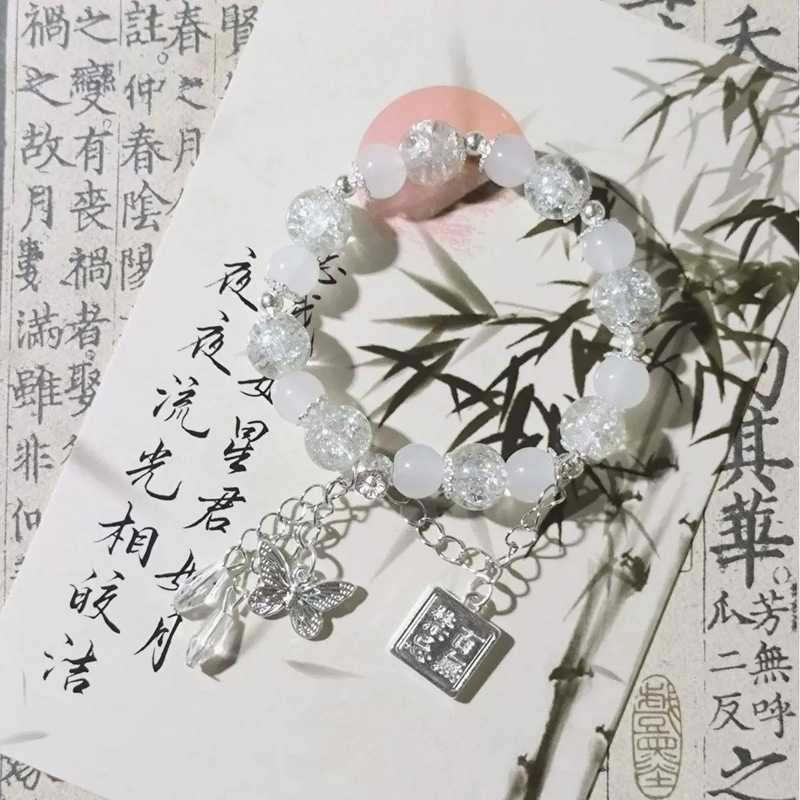 夭
其華
芳無呼
瓜二反
之
我如星君如月
夜夜流光相皎洁
賢
春之月
註。仲春陰陽
之變。有喪禍者。娶
禍之故。月數滿。雖非仲
百無
禁忌